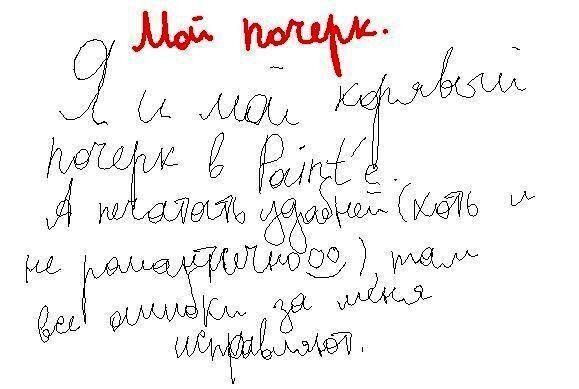 Мой почерк.
Я и мой корявый
почерк в Paint'е.
А печатать удобней (хоть и
не романтичнооо), там
все ошибки за меня
исправляют.